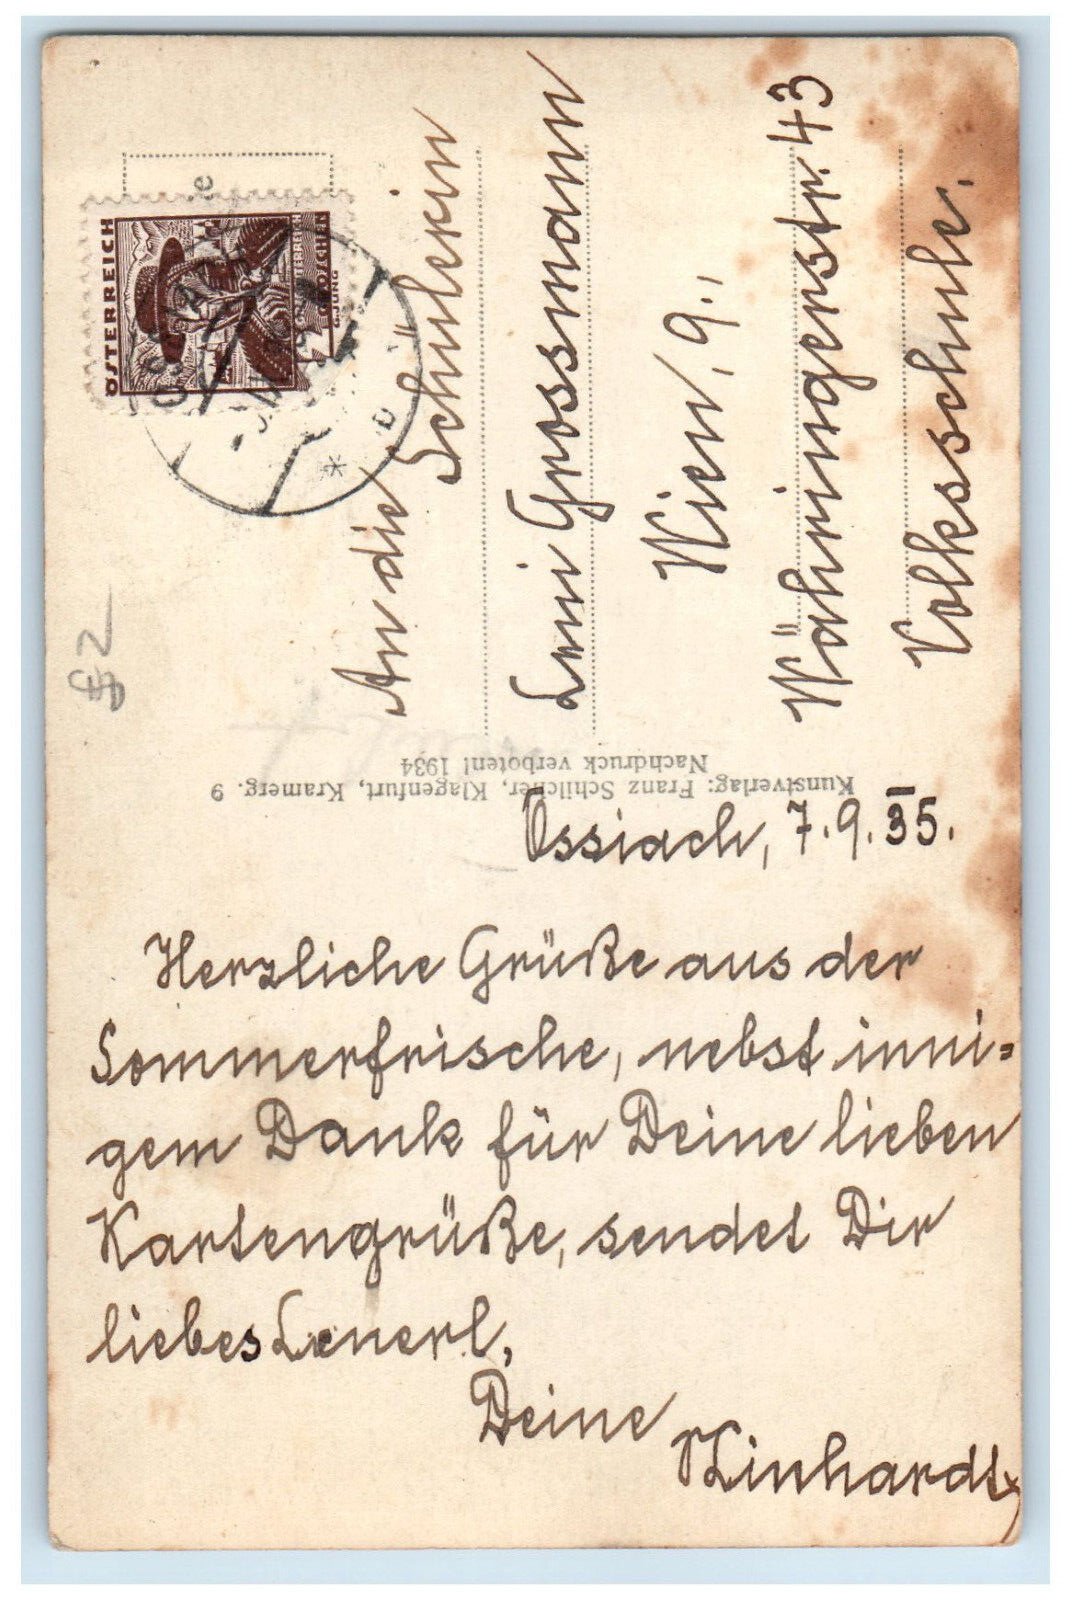 ÖSTERREICH
An die
Schülerin
Leni Grossmann
Wien, 9.,
Währingerstr. 43
Volksschule.
£2
Kunstverlag: Franz Schilcher, Klagenfurt, Kramerg. 9
Nachdruck verboten! 1934
Ossiach, 7.9.35.
Herzliche Grüße aus der
Sommerfrische, nebst inni=
gem Dank für Deine lieben
Kartengrüße, sendet Dir
liebes Lenerl,
Deine